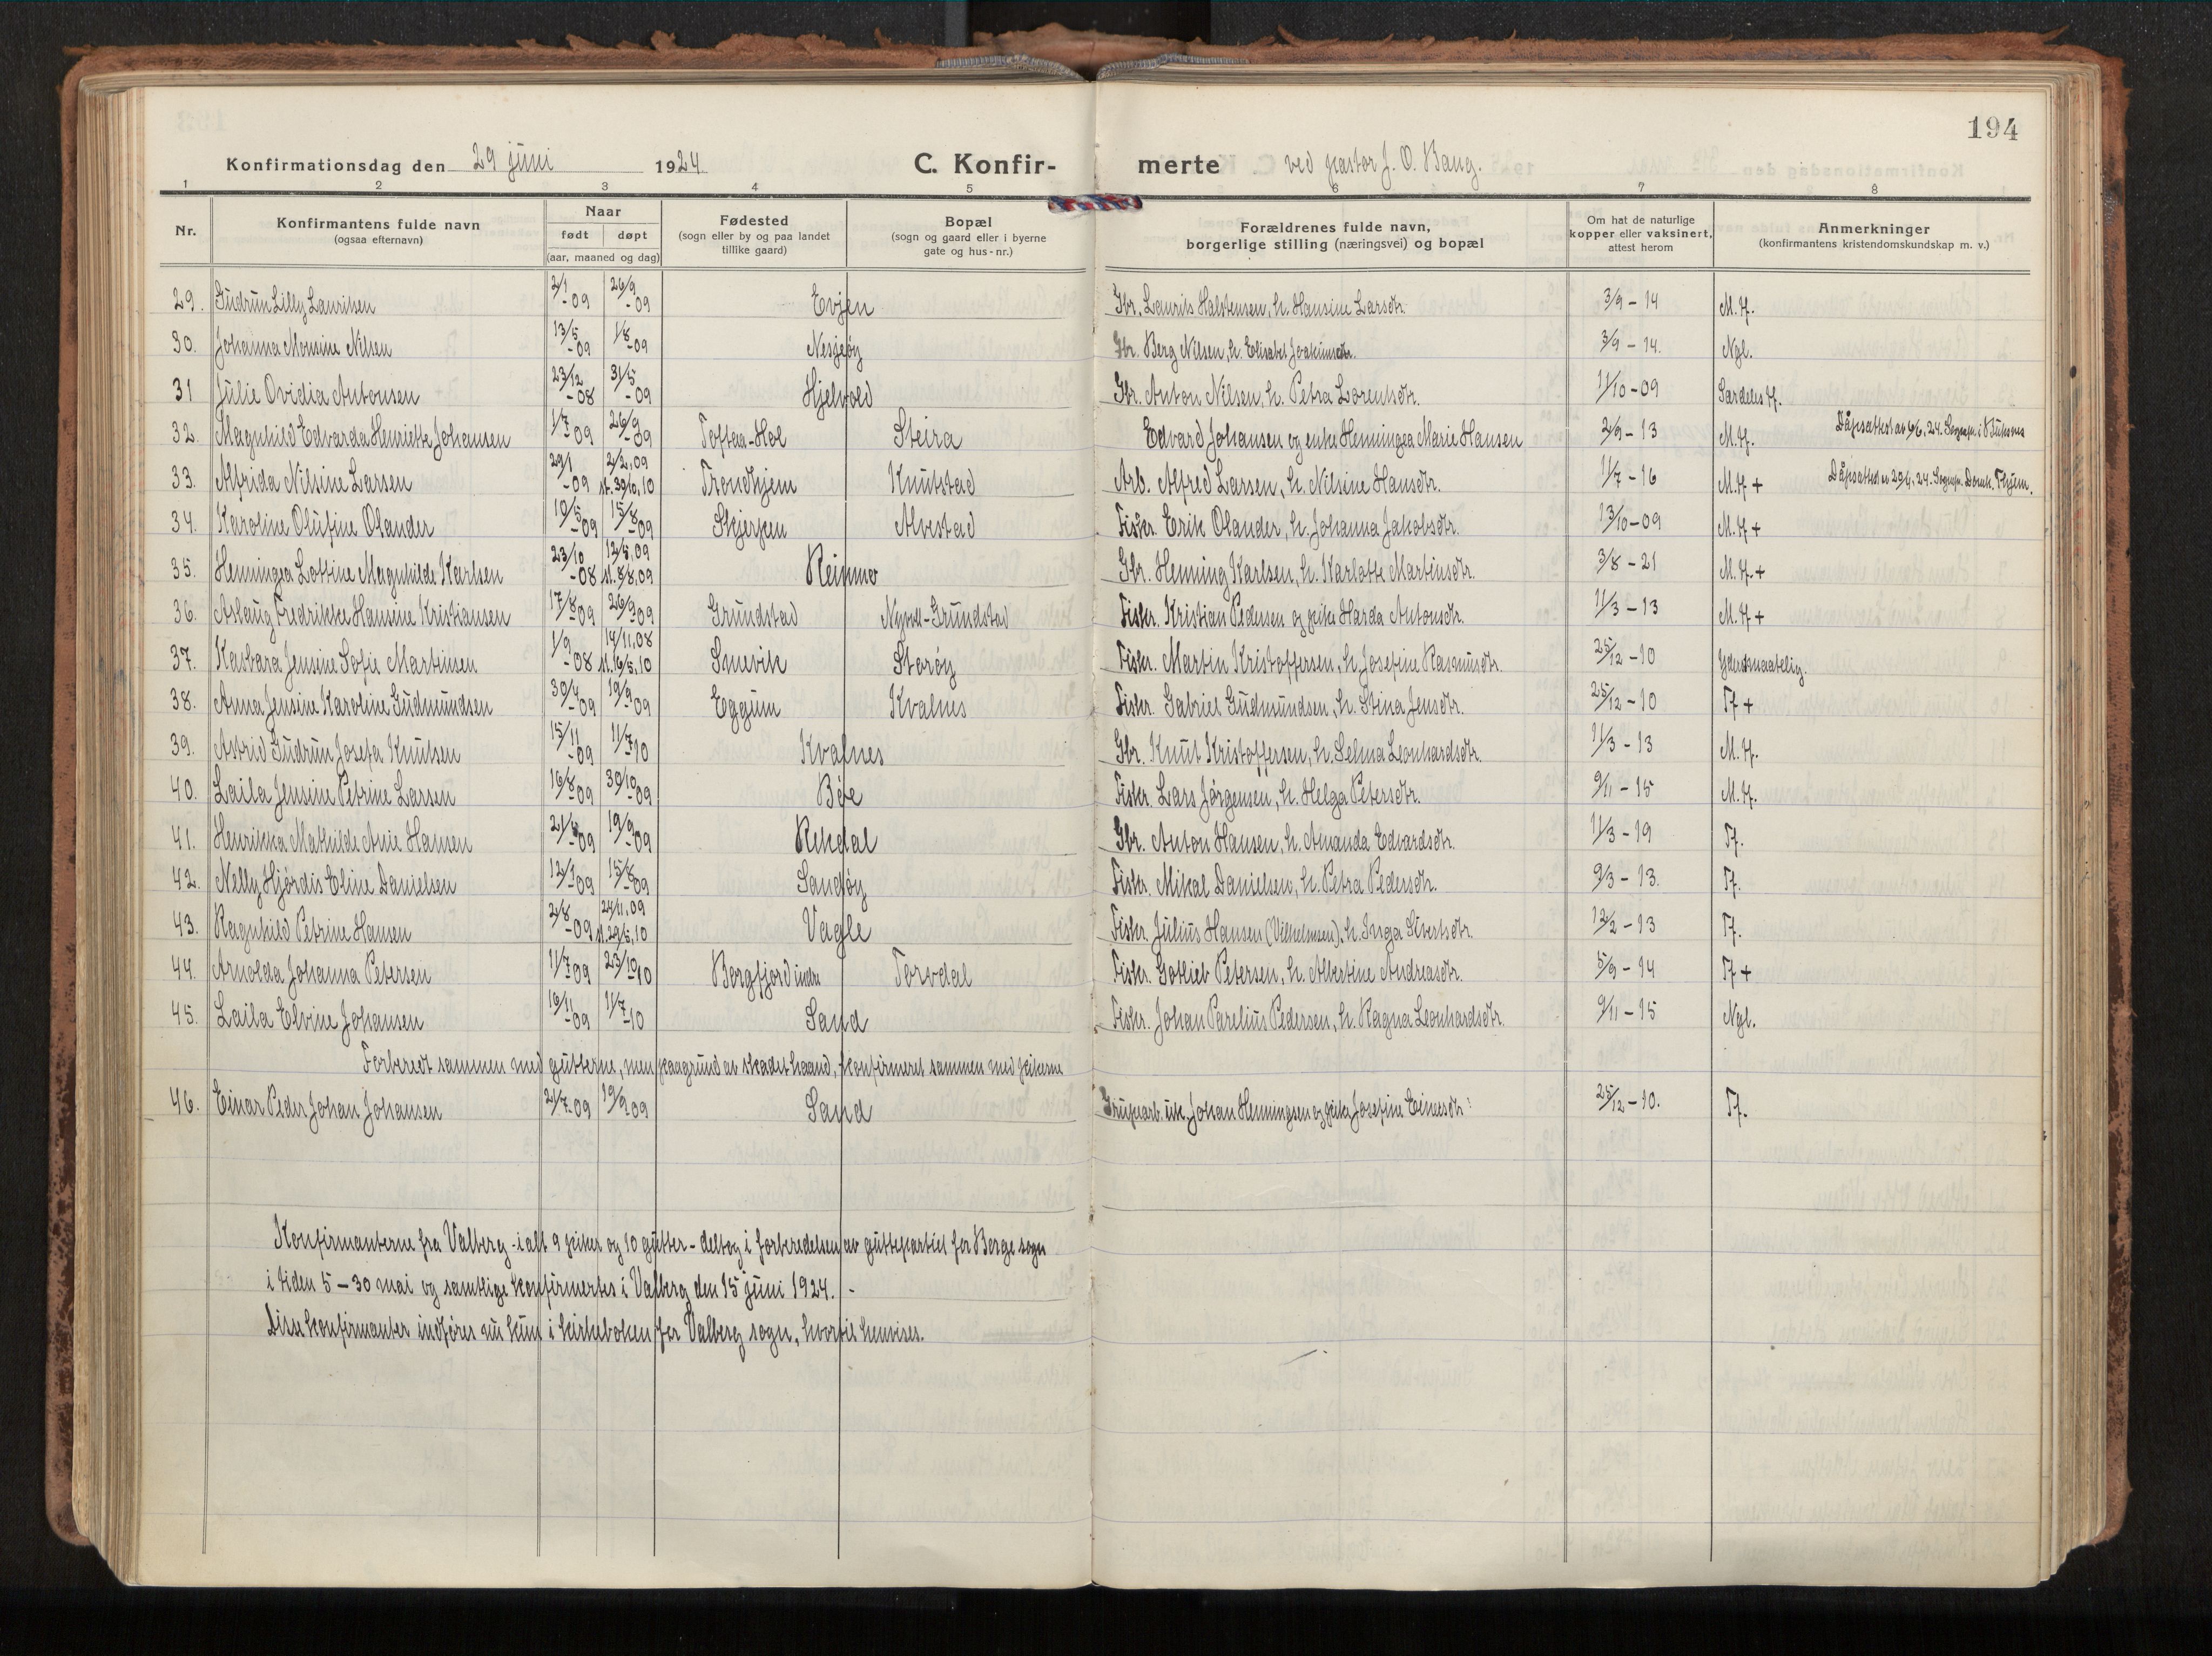 194
Konfirmationsdag den 29 juni 1924. C. Konfir- merte ved pastor J. O. Bang.
1 2 3 4 5 6 7 8
Nr. Konfirmantens fulde navn (ogsaa efternavn) Naar født døpt (aar, maaned og dag) Fødested (sogn eller by og paa landet tillike gaard) Bopæl (sogn og gaard eller i byerne gate og hus-nr.) Forældrenes fulde navn, borgerlige stilling (næringsvei) og bopæl Om hat de naturlige kopper eller vaksinert, attest herom Anmerkninger (konfirmantens kristendomskundskap m. v.)
29. Gudrun Lilly Lauritsen 2/1-09 26/9-09 Evjen Gbr. Laurits Halstensen, h. Hansine Larsdtr. 3/9-14 M.H.
30. Johanna Monsine Nilsen 13/5-09 1/8-09 Nesjeøy Gbr. Berg Nilsen, h. Elisabet Joakimsdtr. 3/9-14. Ngl.
31 Julie Ovidia Antonsen 23/12-08 31/5-09 Hjelvold Gbr. Anton Nilsen, h. Petra Lorentsdtr. 11/10-09 Særdeles
32. Magnhild Edvarda Henriette Johansen 1/7-09 26/9-09 Toftaa-Hol Steira Edvard Johansen og enke Henningea Marie Hansen 2/9-13 M.H. Dåpsattest av 6/6,24. Sognepr. i Buksnes
33. Alfrida Nilsine Larsen 29/1-09 2/2,09 st. 30/10,10 Trondhjem Knutstad Arb. Alfred Larsen, h. Nilsine Hansdtr. 11/7-16 M.H + Dåpsattest av 24. Sognepr. Domk. Thjem.
34. Karoline Olufine Olander 10/5-09 15/8-09 Skjerpen Alvestad Fisker. Erik Olander, h. Johanna Jakobsdtr. 13/10-09 M.H +
35. Henningea Lottine Magnhilde Karlsen 23/10-08 12/5,09 st. 8/8,09 Reinmo Gbr. Henning Karlsen, h. Karlotte Martinsdtr. 3/8-21 M.H.+
36. Aslaug Fredrikke Hansine Kristiansen 17/8-09 26/9-09 Grundstad Nyvoll-Grundstad Fisker. Kristian Pedersen og pike Harda Antonsdtr. 11/3-13 M.H +
37. Kasbara Jensine Sofie Martinsen 1/9-08 14/11,08 st. 16/5,10 Smevik Storøy Fisker. Martin Kristoffersen, h. Josefine Rasmusdtr. 25/12-10 Yderst maatelig.
38. Anna Jensine Karoline Gudmundsen 30/4-09 19/9-09 Eggum Kvalnes Fisker. Gabriel Gudmundsen, h. Stina Jensdtr. 25/12-10 H +
39. Astrid Gudrun Josefa Knutsen 15/11-09 11/7-10 Kvalnes Gbr. Knut Kristoffersen, h. Selma Leonhardsdtr. 11/3-13 M.H.
40. Laila Jensine Petrine Larsen 16/8-09 30/10-09 Bøe Fisker. Lars Jørgensen, h. Helga Petersdtr. 9/11-15 M.H.
41. Henrikka Mathilde Anie Hansen 09 19/9-09 Rekdal Gbr. Anton Hansen, h. Amanda Edvardsdtr. 11/3-19 H.
42. Nelly Hjørdis Eline Danielsen 12/1-09 15/8-09 Sandøy Fisker. Mikal Danielsen, h. Petra Pedersdtr. 9/3-13. H.
43. Ragnhild Petrine Hansen 2/8-09 24/11,09 st. 29/5,10 Vagle Fisker. Julius Hansen (Vilhelmsen), h. Inga Sivertsdtr. 12/2-13 H.
44. Arnolda Johanna Petersen 11/7-09 23/10-10 Borgfjord indre Torvdal Fisker. Gotlieb Petersen, h. Albertine Andreasdtr. 5/9-14 H +
45. Laila Elvine Johansen 16/11-09 11/7-10 Sand Fisker. Johan Parelius Pedersen, h. Ragna Leonhardsdtr. 9/11-15 Ngl.
Forberedt sammen med gutterne, men paagrund av skadet haand, konfirmeret sammen med pikerne
46. Einar Peder Johan Johansen 2/7-09 19/9-09 Sand Grupearb. Johan Henningsen og pike Josefine Einesdtr. 25/12-10. H.
Konfirmanterne fra Valberg - ialt 9 piker og 10 gutter - deltog i forberedelsen av guttepartiet for Borge sogn
i tiden 5-30 mai og samtlige konfirmertes i Valberg den 15 juni 1924. -
Disse konfirmanter indføres nu kun i kirkeboken for Valberg sogn, hvortil henvises.